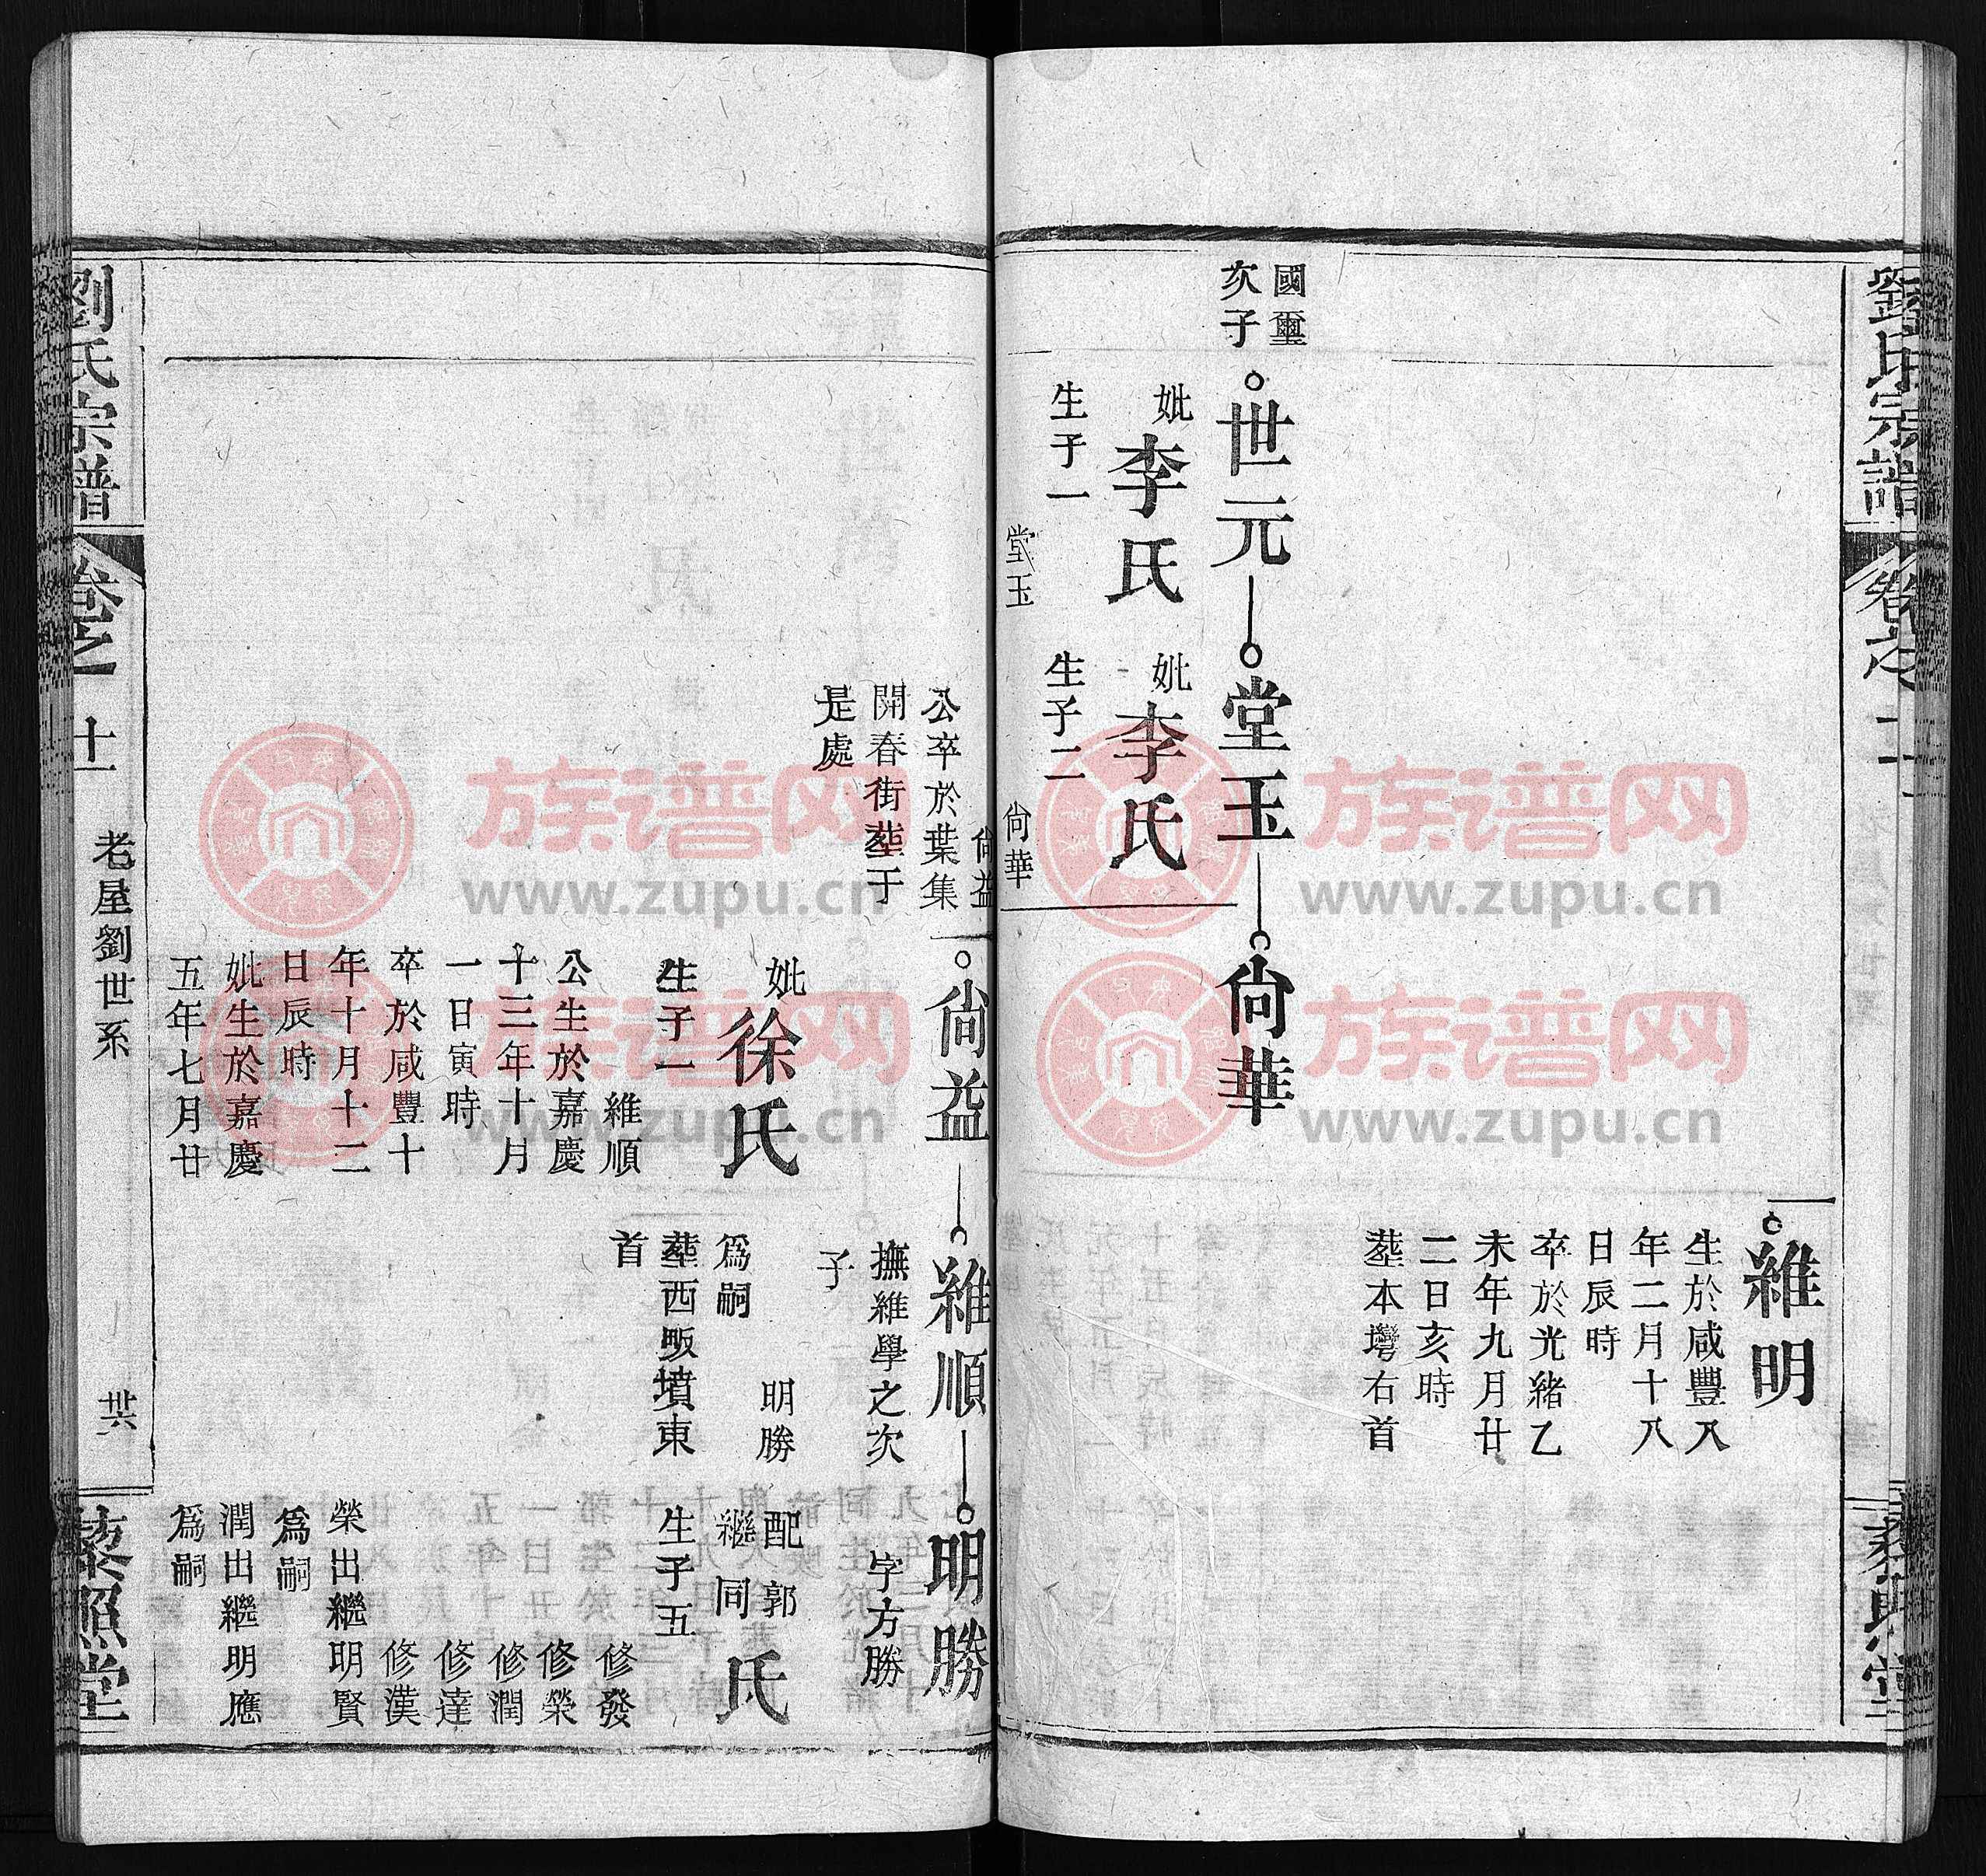 劉氏宗譜
卷之
維明
生於咸豐八
年二月十八
日辰時
卒於光緒乙
未年九月廿
二日亥時
塟本塆右首
國璽
次子
世元
妣李氏
生子一
堂玉
堂玉
妣李氏
生子二
尙華
尙益
尙華
公卒於葉集
開春街塟于
是處
尙益
妣徐氏
生子一
維順
公生於嘉慶
十三年十月
一日寅時
卒於咸豐十
年十月十二
日辰時
妣生於嘉慶
五年七月廿
維順
撫維學之次
子
明勝
爲嗣
塟西畈墳東
首
明勝
字方勝
配郭
繼同
氏
生子五
修發
修榮
修潤
修達
修漢
榮出繼明賢
爲嗣
潤出繼明應
爲嗣
劉氏宗譜
卷之一
十一
老屋劉世系
卅六
藜照堂
族谱网
www.zupu.cn
族谱网
www.zupu.cn
族谱网
www.zupu.cn
族谱网
www.zupu.cn